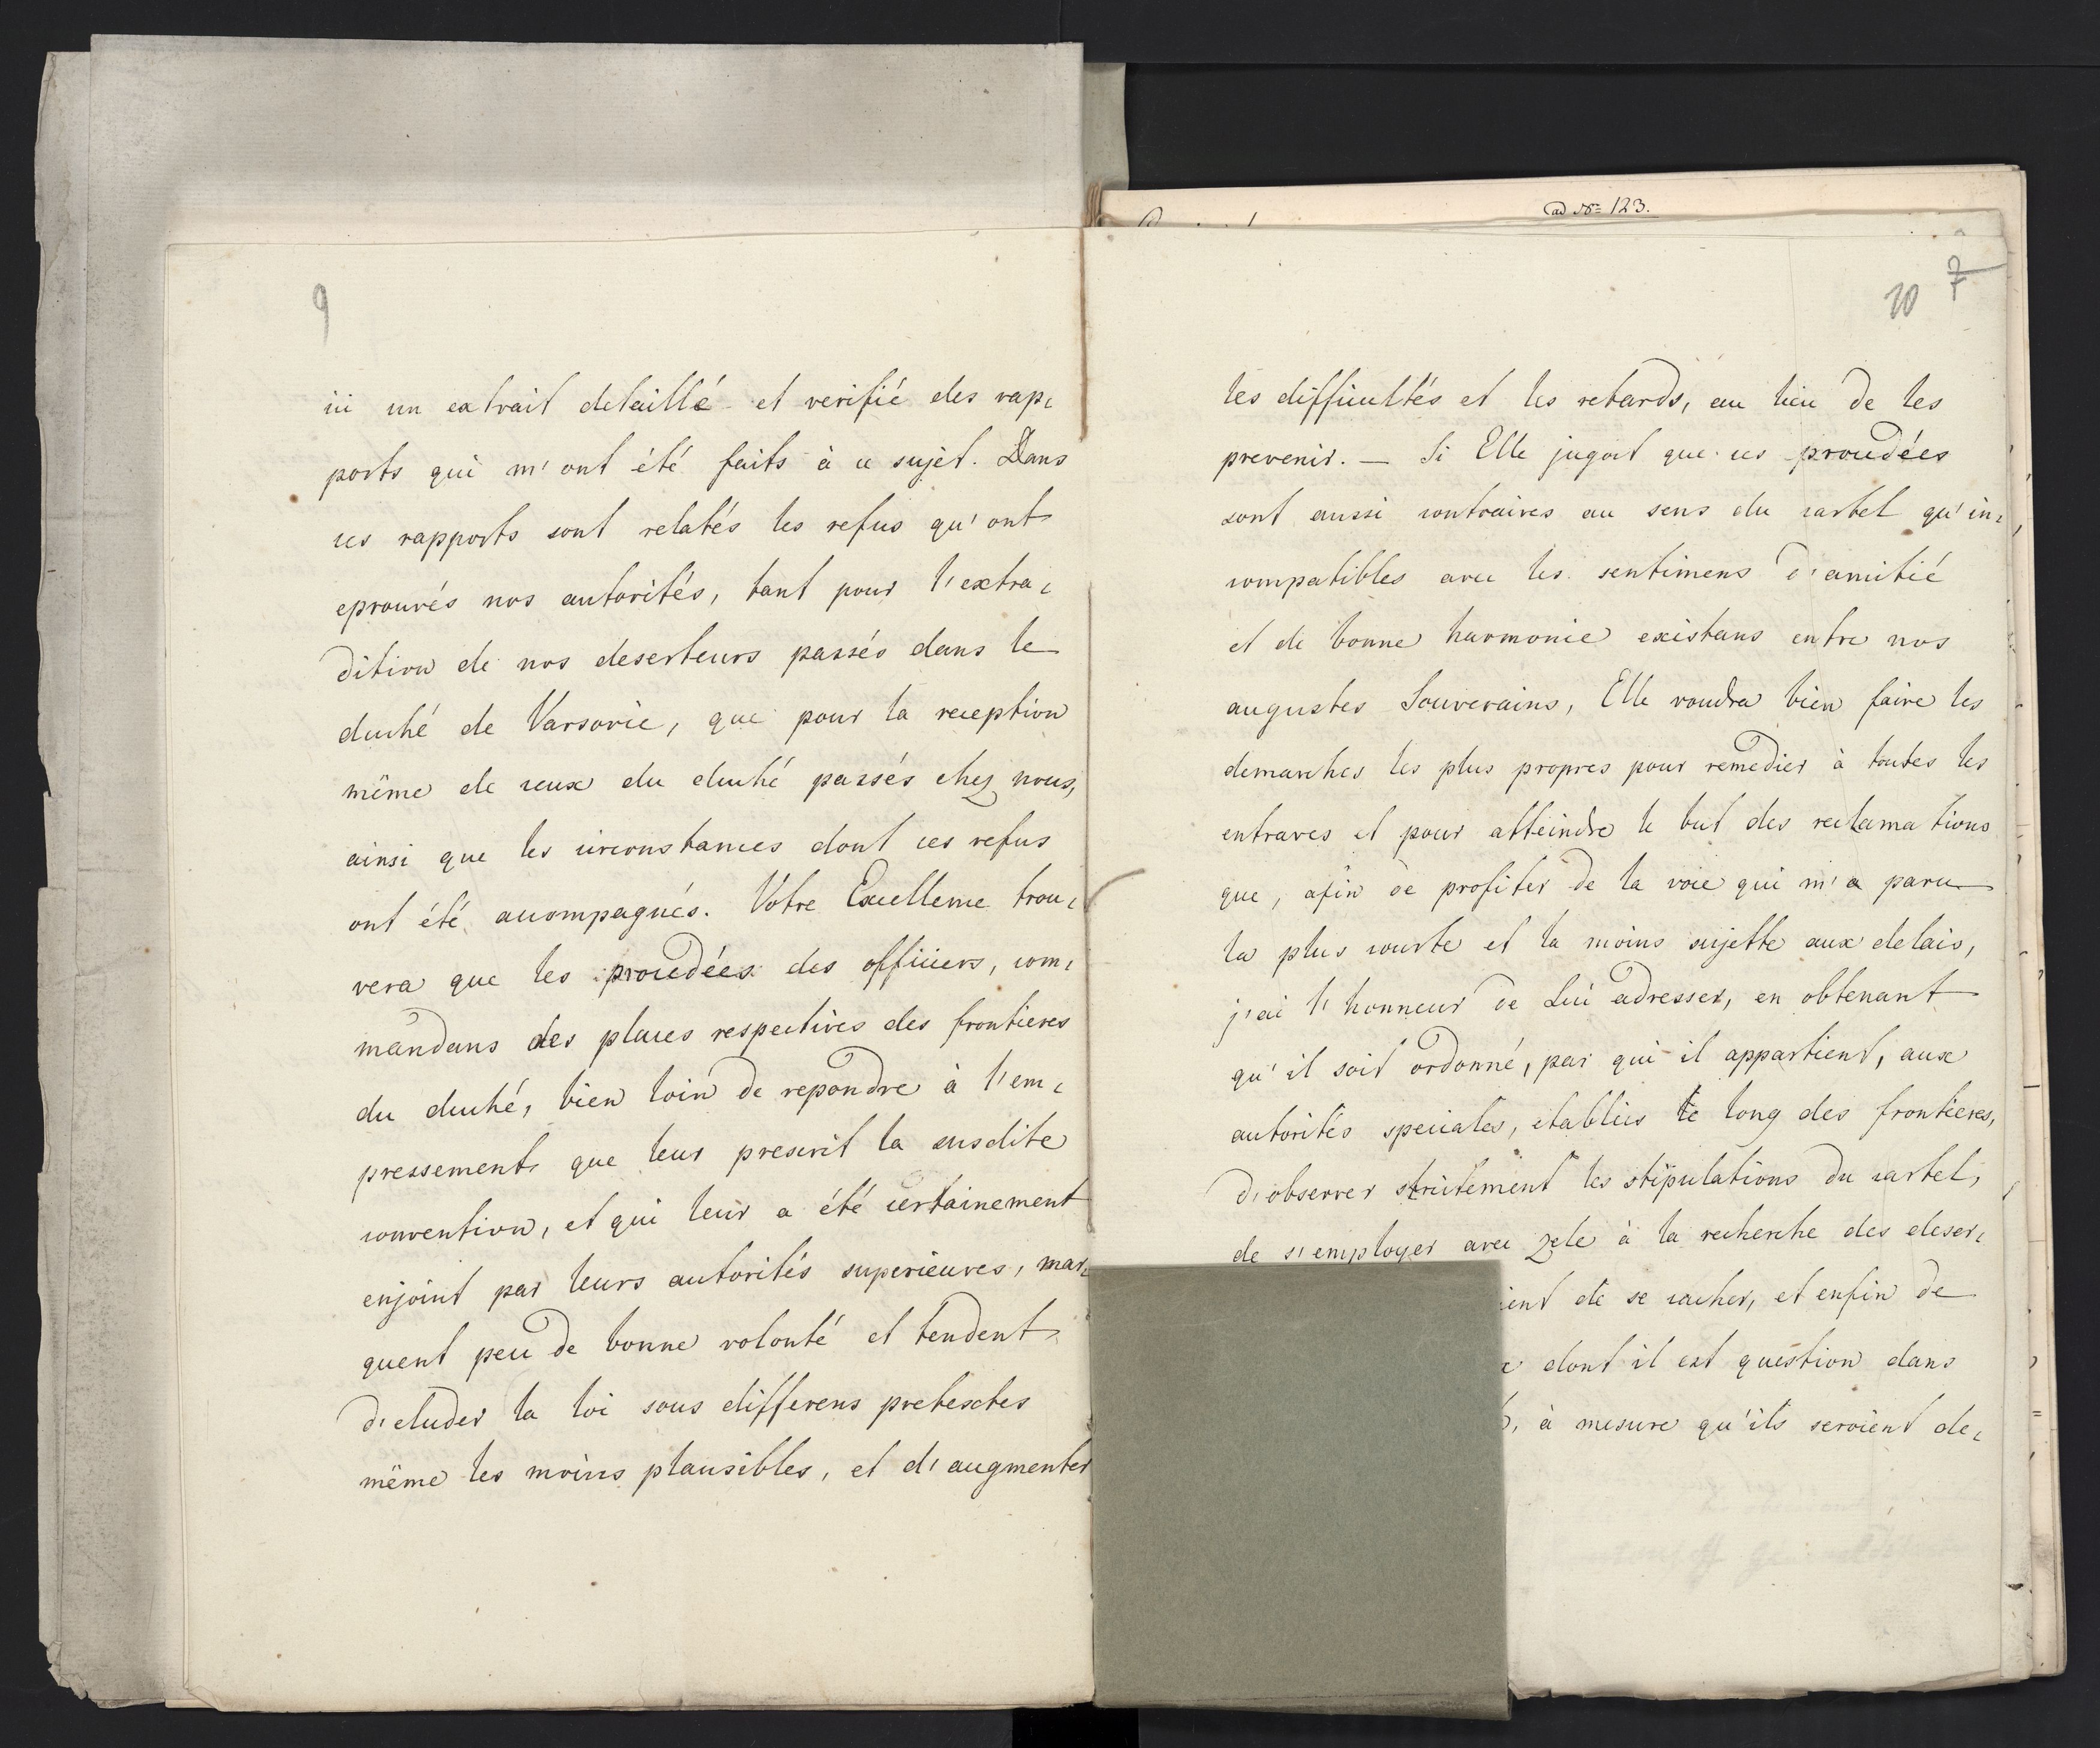 9
ici un extrait detaillé et verifié des rap-
ports qui m'ont été faits à ce sujèt. Dans
ces rapports sont relatés les refus qu'ont
eprouvés nos autorités, tant pour l'extra-
dition de nos deserteurs passés dans le
duché de Varsovie, que pour la reception
même de ceux du duché passés chez nous,
ainsi que les circonstances dont ces refus
ont été accompagnés. Vôtre Excellence trou-
vera que les procedées des officiers, com-
mandans des places respectives des frontieres
du duché, bien loin de repondre à l'em-
pressement que leur prescrit la susdite
convention, et qui leur a été certainement
enjoint par leurs autorités superieures, mar-
quent peu de bonne volonté et tendent
d'eluder la loi sous differens pretextes
même les moins plausibles, et d'augmenter
ad No 123.
10 7
les difficultés et les retards, au lieu de les
prevenir. — Si Elle jugoit que ces procedées
sont aussi contraires au sens du cartel qu'in-
compatibles avec les sentimens d'amitié
et de bonne harmonie existans entre nos
augustes Souverains, Elle voudra bien faire les
demarches les plus propres pour remedier à toutes les
entraves et pour atteindre le but des reclamations
que, afin de profiter de la voie qui m'a paru
la plus courte et la moins sujette aux delais,
j'ai l'honneur de Lui adresser, en obtenant
qu'il soit ordonné, par qui il appartient, aux
autorités speciales, etablies le long des frontieres,
d'observer strictement les stipulations du cartel,
de s'employer avec zele à la recherche des deser-
ient de se cacher, et enfin de
dont il est question dans
, à mesure qu'ils seroient de-